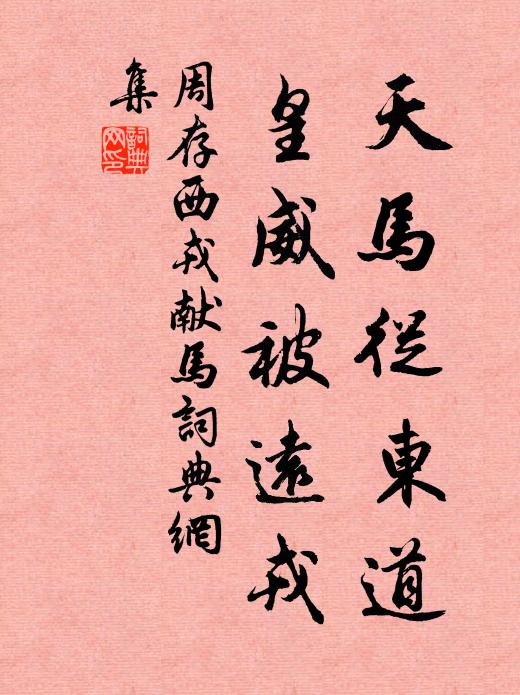 天馬從東道
皇威被遠戎
周存西戎献馬詞典網
集
詞典
网印